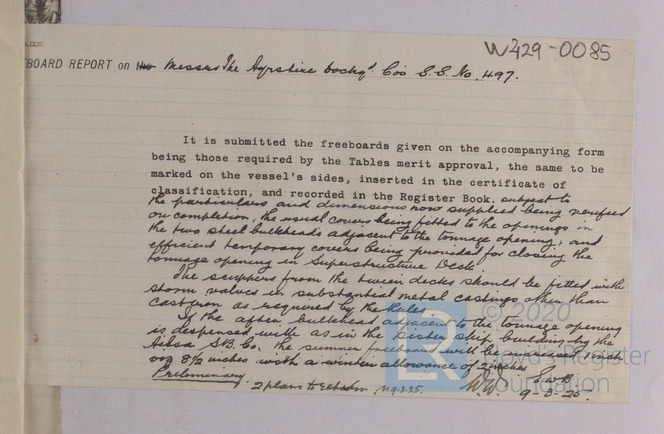 W429-0085
BOARD REPORT on the Messrs The Ayrshire Dockyd. Co's S.S. No. 497.
It is submitted the freeboards given on the accompanying form
being those required by the Tables merit approval, the same to be
marked on the vessel's sides, inserted in the certificate of
classification, and recorded in the Register Book, subject to
the particulars and dimensions now supplied being verified
on completion, the usual covers being fitted to the openings in
the two steel bulkheads adjacent to the tonnage opening, and
efficient temporary covers being provided for closing the
tonnage opening in Superstructure Deck.
The scuppers from the tween decks should be fitted with
storm valves in substantial metal castings other than
cast iron as required by the Rules.
If the after bulkhead adjacent to the tonnage opening
is dispensed with as in the sister ship building by the
Ailsa S.B. Co. the summer freeboard will be increased 1 inch
viz 8½ inches with a winter allowance of 2 inches
Preliminary.
2 plans to 9.3.25.
9-3-25.
© 2020
Lloyd's Register
Foundation
LR